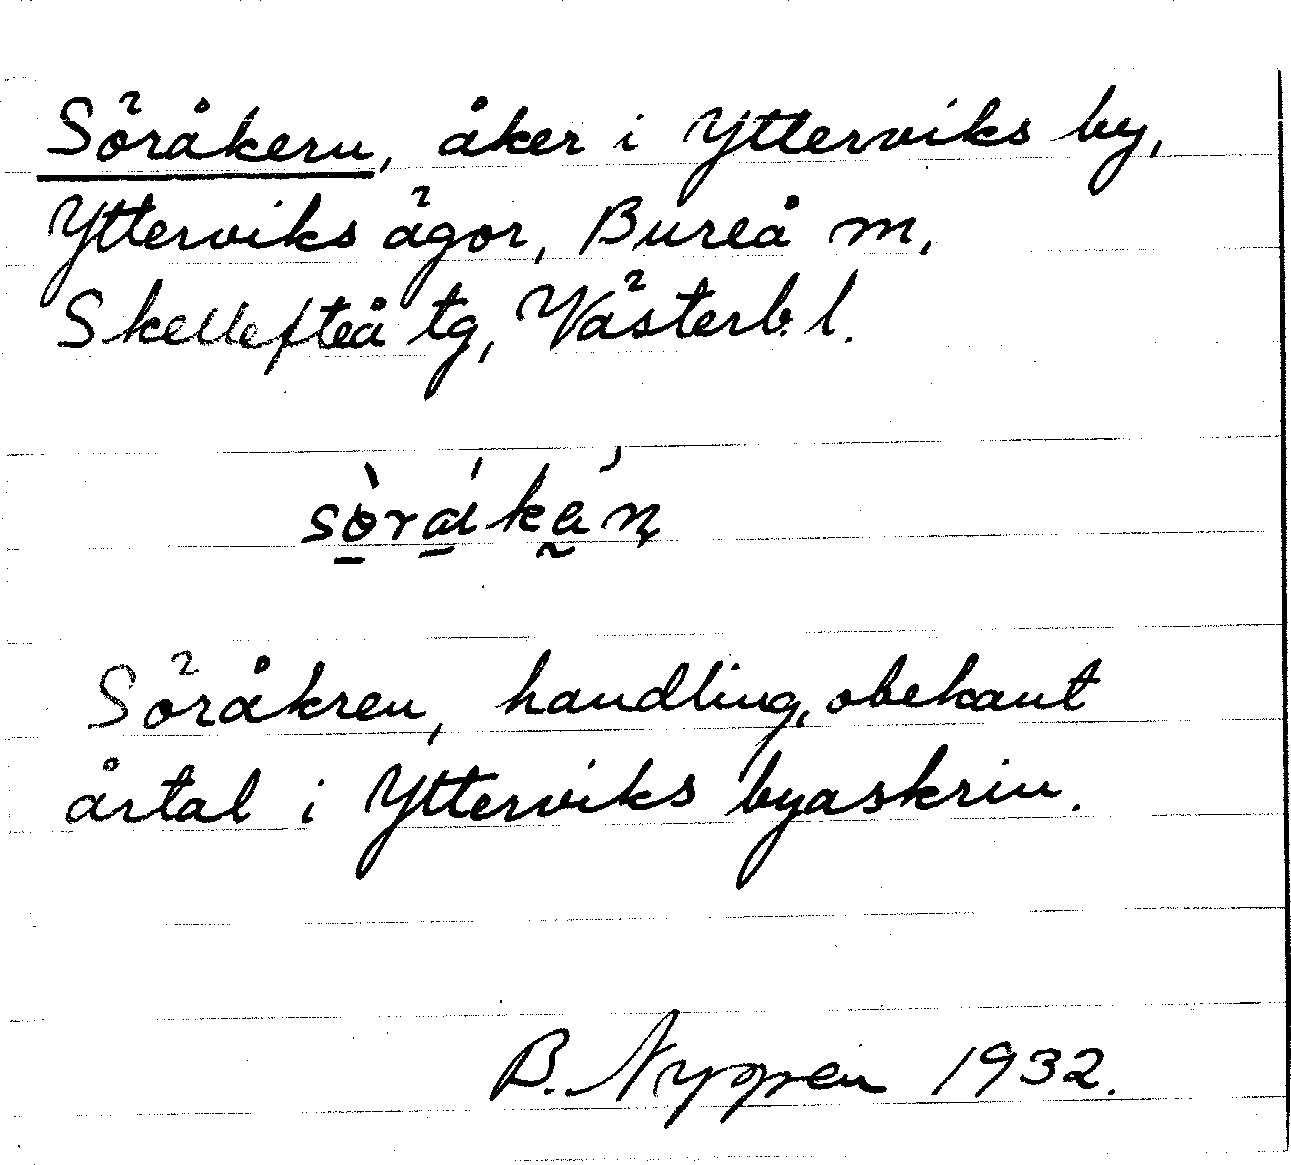 Söråkern, åker i Ytterviks by,
Ytterviks ägor, Bureå m,
Skellefteå tg, Västerb. l.
Söråkren, handling, obekant
årtal i Ytterviks byaskrin.
B. Nyppen 1932.